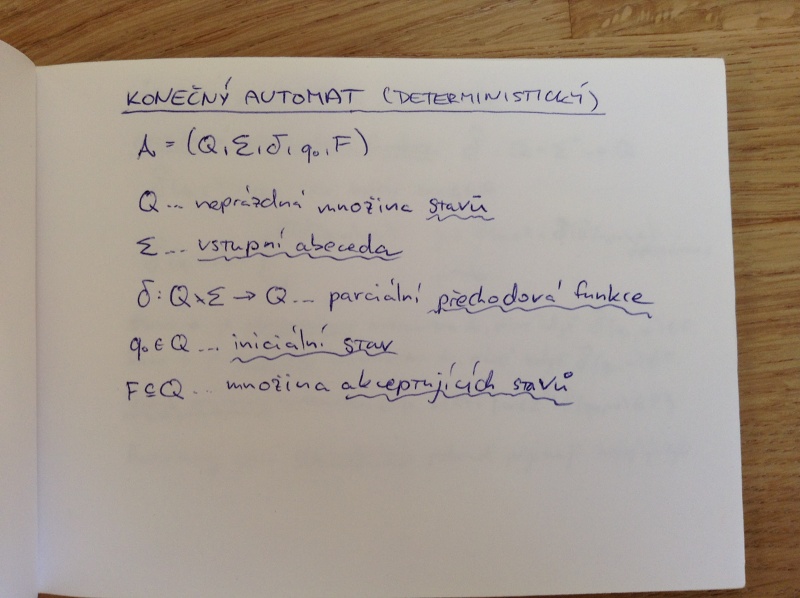 KONEČNÝ AUTOMAT (DETERMINISTICKÝ)
A = (Q, Σ, δ, q₀, F)
Q ... neprázdná množina stavů
Σ ... vstupní abeceda
δ: Q×Σ → Q ... parciální přechodová funkce
q₀ ∈ Q ... iniciální stav
F ⊆ Q ... množina akceptujících stavů